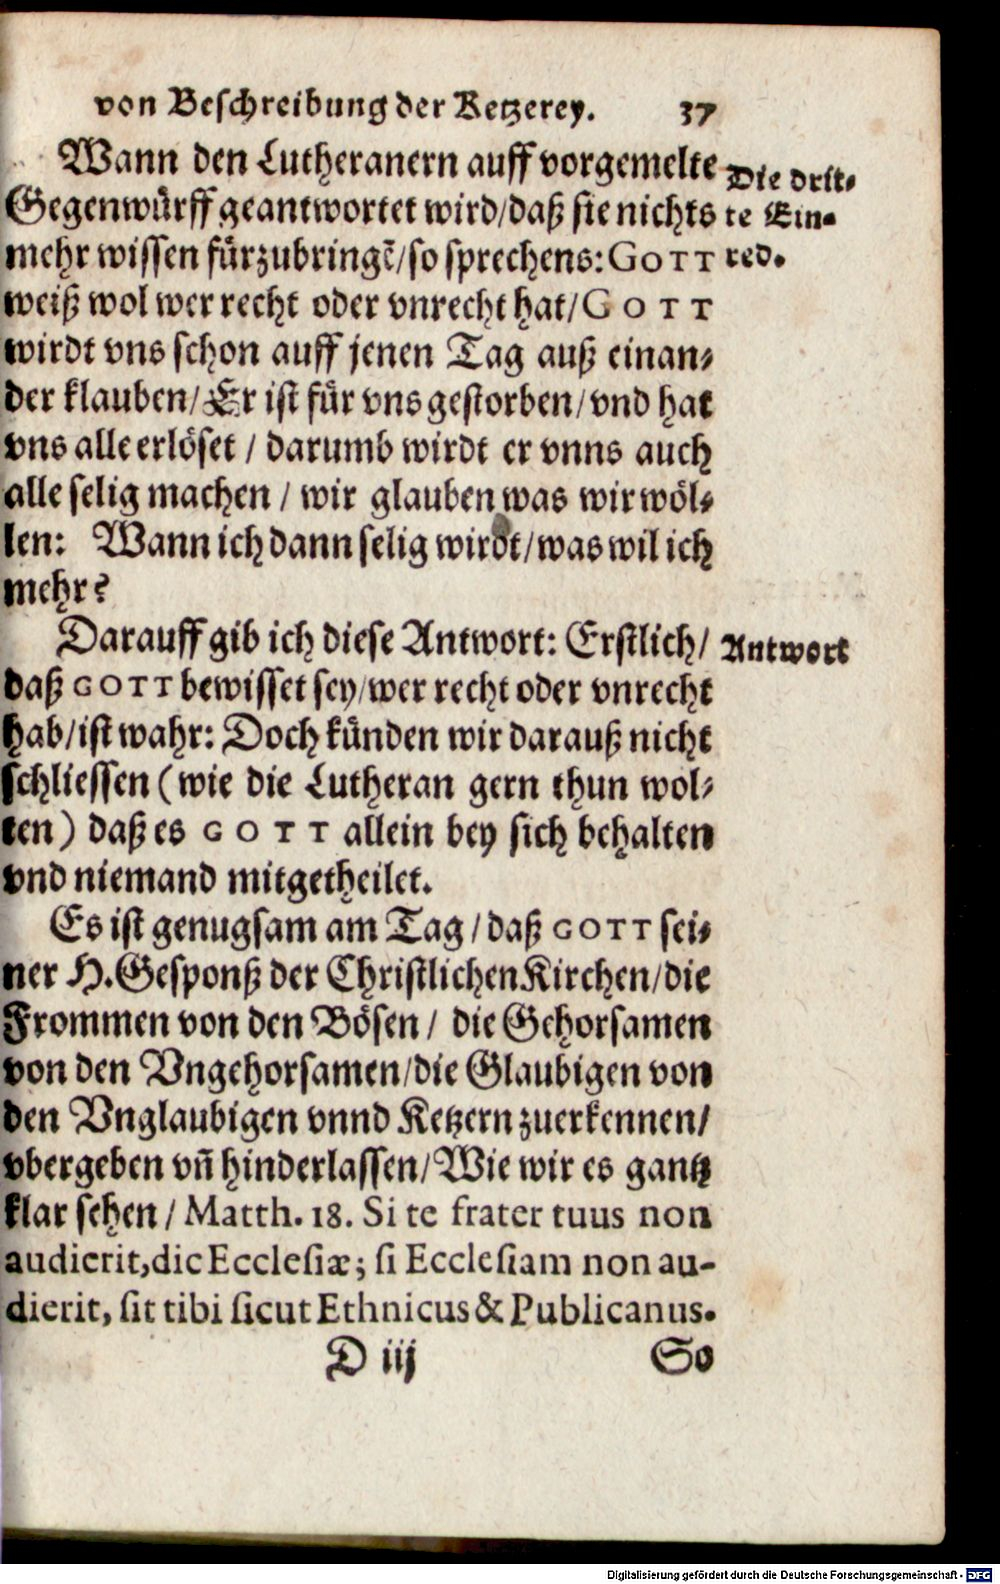 von Beschreibung der Ketzerey. 37
Wann den Lutheranern auff vorgemelte
Gegenwürff geantwortet wird/daß sie nichts
mehr wissen fürzubringē/so sprechens: GOTT
weiß wol wer recht oder vnrecht hat/GOTT
wirdt vns schon auff jenen Tag auß einan-
der klauben/Er ist für vns gestorben/vnd hat
vns alle erlöset / darumb wirdt er vnns auch
alle selig machen / wir glauben was wir wöl-
len: Wann ich dann selig wirdt/was wil ich
mehr?
Die drit-
te Ein-
red.
Darauff gib ich diese Antwort: Erstlich/
daß GOTT bewisset sey/wer recht oder vnrecht
hab/ist wahr: Doch künden wir darauß nicht
schliessen (wie die Lutheran gern thun wol-
ten) daß es GOTT allein bey sich behalten
vnd niemand mitgetheilet.
Antwort
Es ist genugsam am Tag/daß GOTT sei-
ner H. Gesponß der Christlichen Kirchen/die
Frommen von den Bösen/ die Gehorsamen
von den Vngehorsamen/die Glaubigen von
den Vnglaubigen vnnd Ketzern zuerkennen/
vbergeben vñ hinderlassen/Wie wir es gantz
klar sehen/ Matth. 18. Si te frater tuus non
audierit, dic Ecclesiæ; si Ecclesiam non au-
dierit, sit tibi sicut Ethnicus & Publicanus.
D iij So
Digitalisierung gefördert durch die Deutsche Forschungsgemeinschaft - DFG